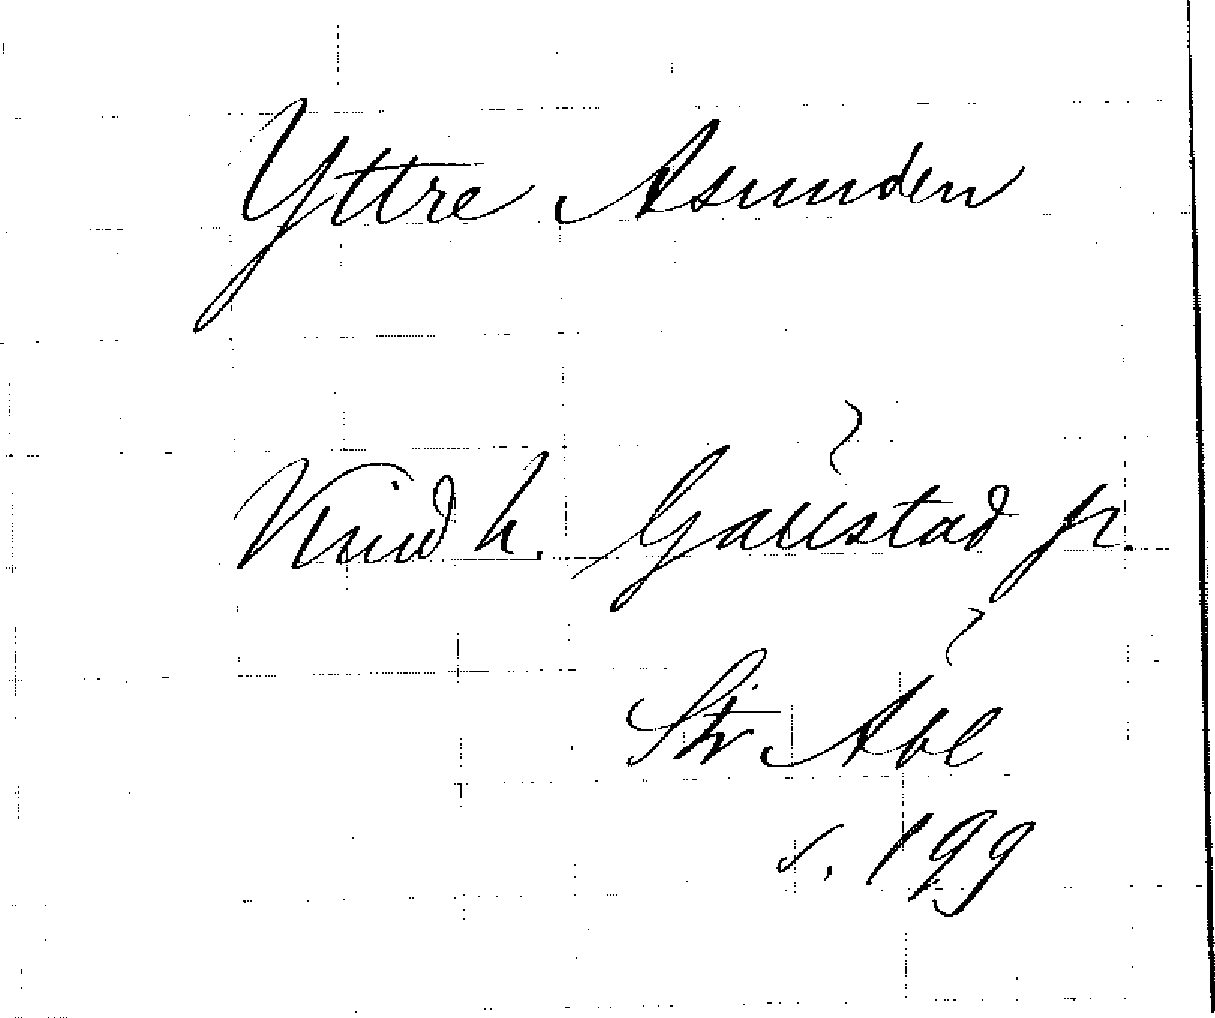 Yttre Asunden
Knud h. Gaustad jr.
Str.
s. 199